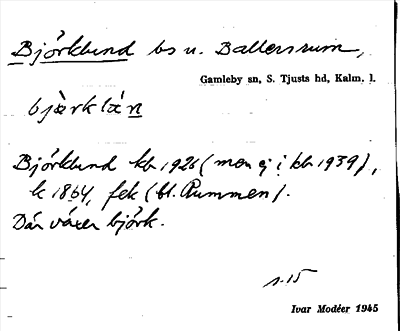 Björklund bs u. Ballersrum,
Gamleby sn, S. Tjusts hd, Kalm. l.
bjärklán
Björklund kb 1926 (men ej i kb 1939),
k 1864, fek (bl. Rummen).
Där växer björk.
s. 15
Ivar Modéer 1945